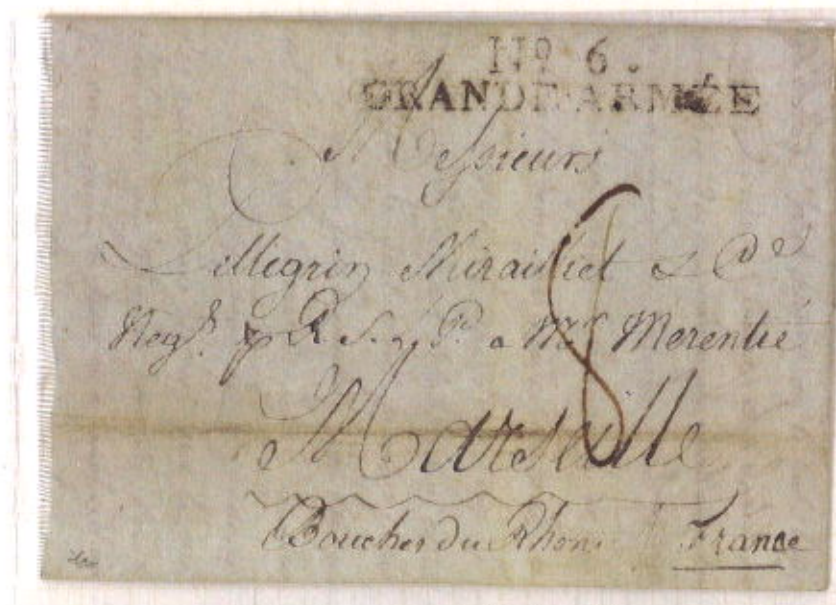 Nº 6.
GRANDE ARMÉE
Messieurs
Pellegrin Miraillet & Cie
Negts. p a Mr Merentié
8
Marseille
Bouches du Rhone France